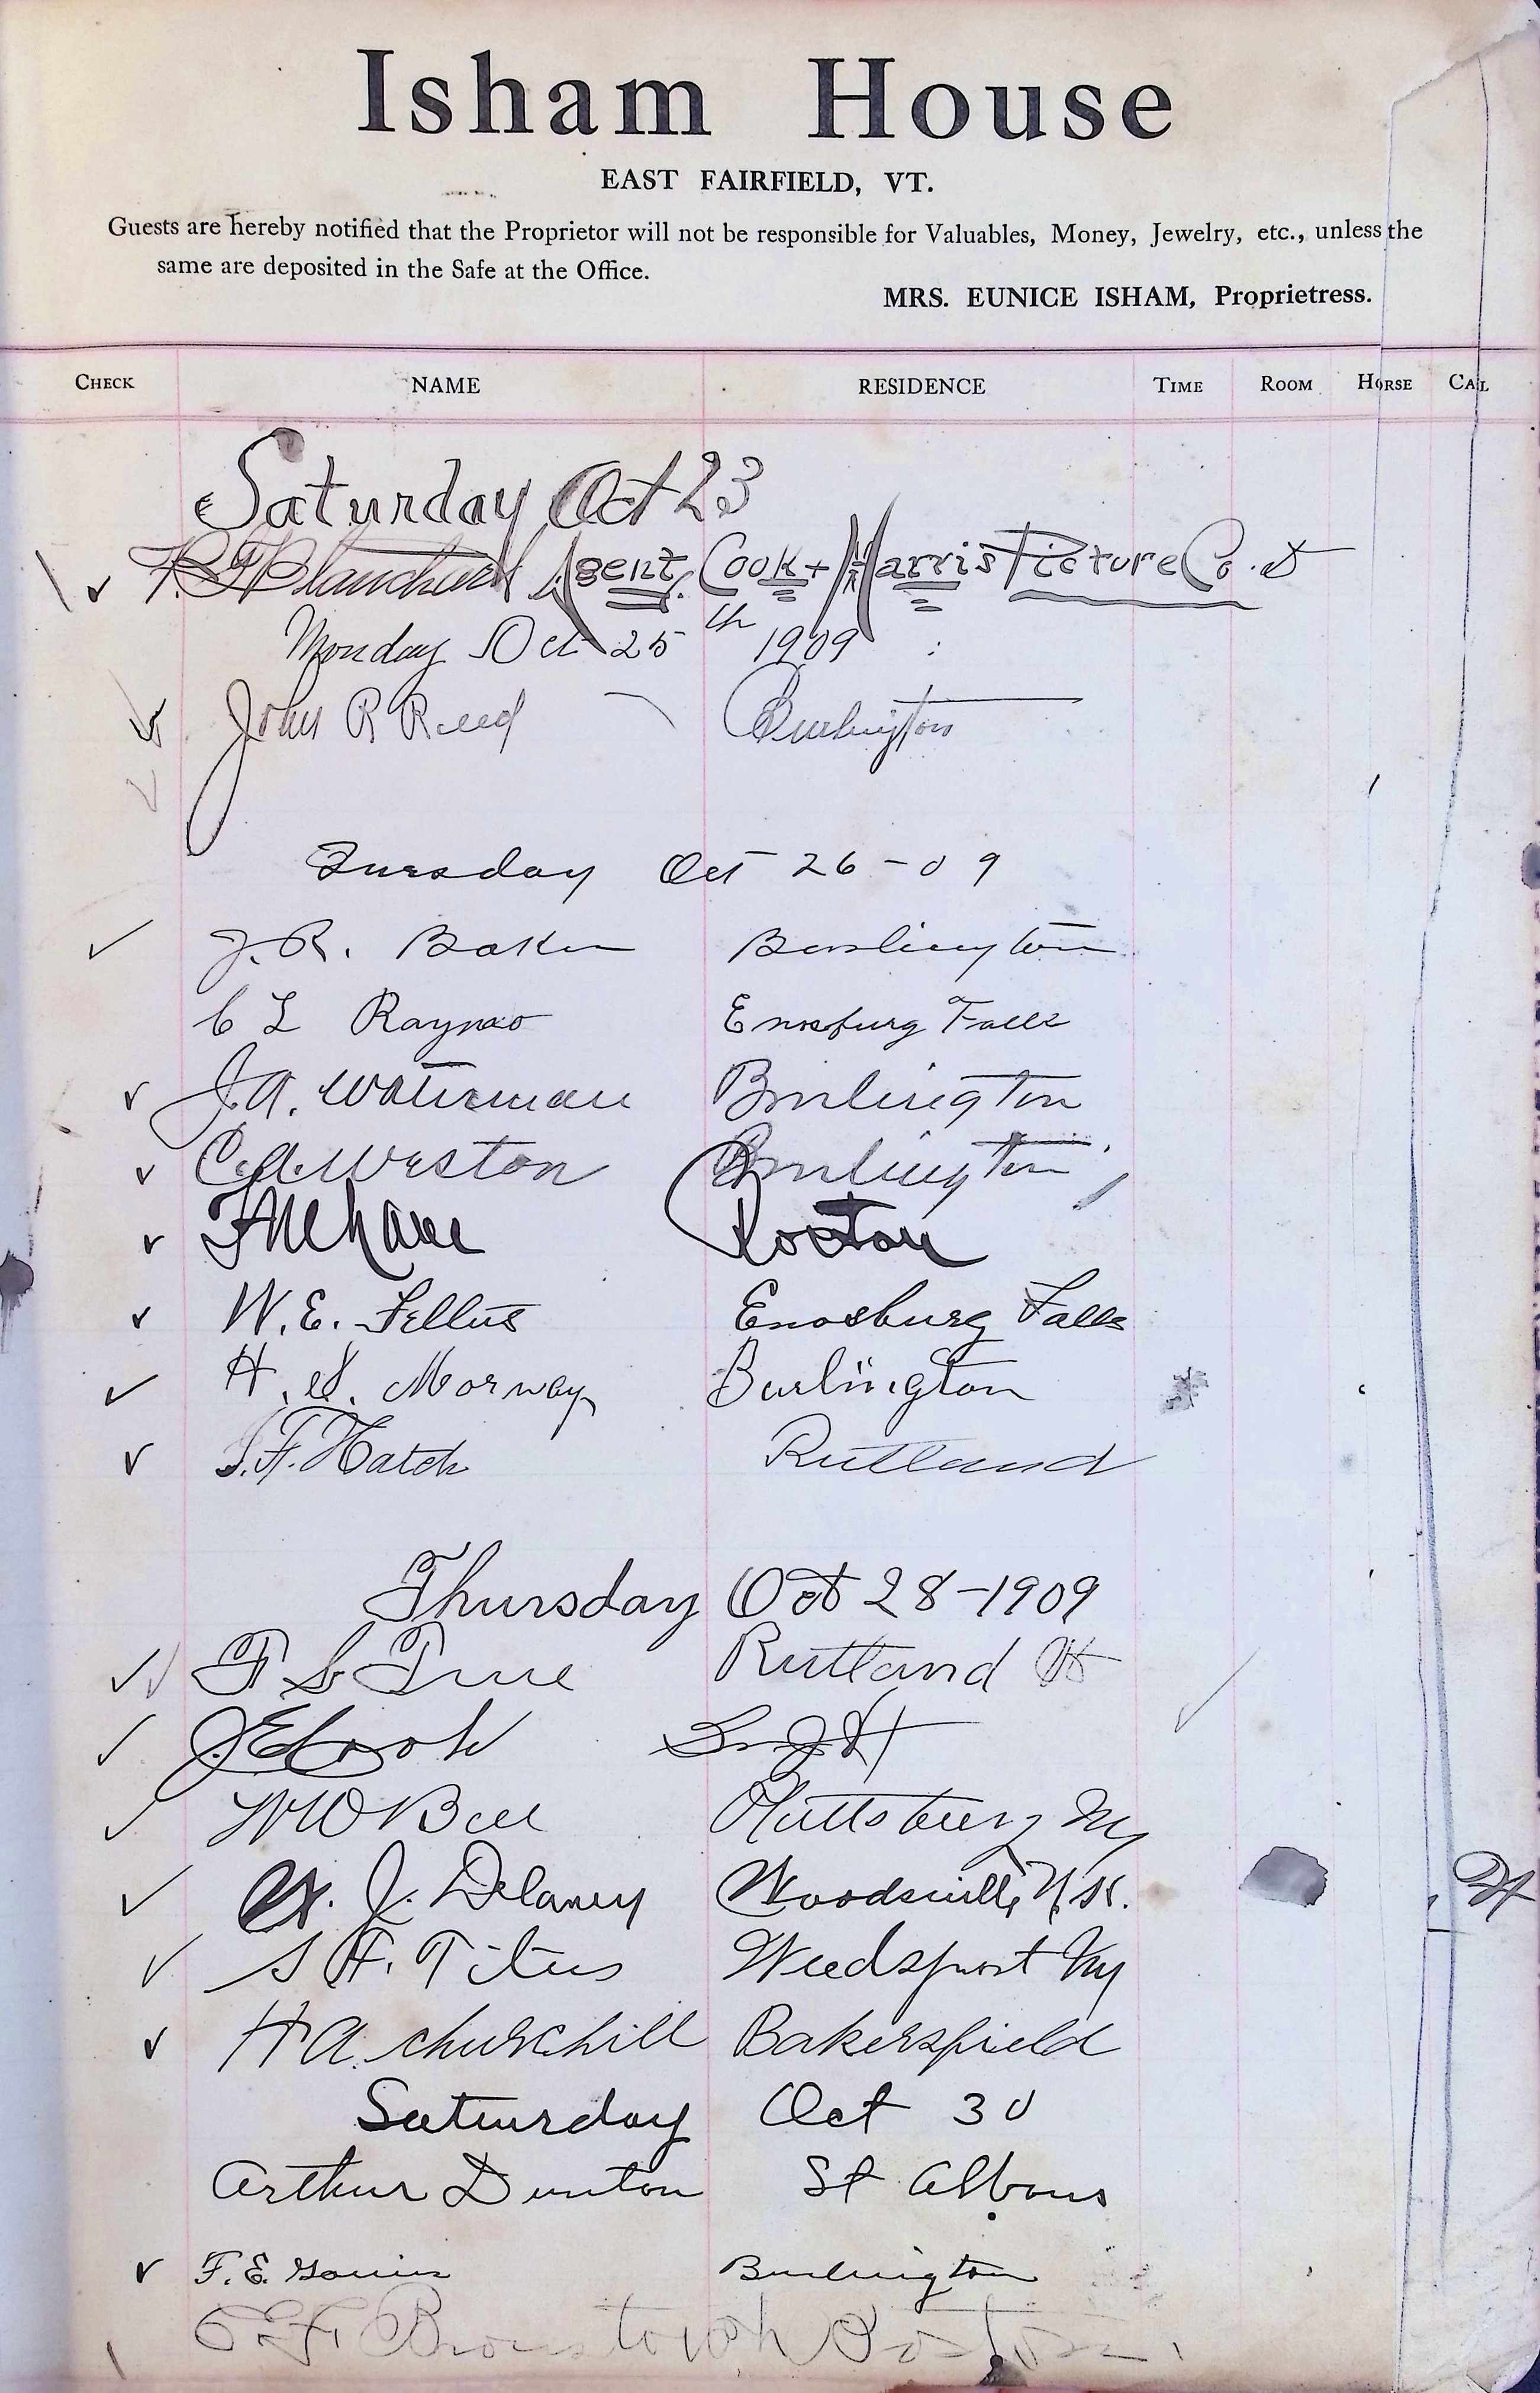 Isham House
EAST FAIRFIELD, VT.
Guests are hereby notified that the Proprietor will not be responsible for Valuables, Money, Jewelry, etc., unless the
same are deposited in the Safe at the Office.
MRS. EUNICE ISHAM, Proprietress.
CHECK NAME RESIDENCE TIME ROOM HORSE CALL
Saturday Oct 23
Agent, Cook + Harris Picture Co.
Monday Oct 25th 1909
John R Reed Burlington
Tuesday Oct 26-09
J.R. Baker Burlington
C L Enosburg Falls
J.A. Waterman Burlington
C.A. Weston Burlington
Boston
W.E. Fellus Enosburg Falls
H. S. Morway Burlington
S.F. Hatch Rutland
Thursday Oct 28-1909
F S True Rutland Vt
J.E. Cook
W W Bell Plattsburg NY
J. Delaney Woodsville, N.H.
S H. Titus Weedsport NY
H A. Churchill Bakersfield
Saturday Oct 30
Arthur Dunton St Albans
F.E. Burlington
Boston